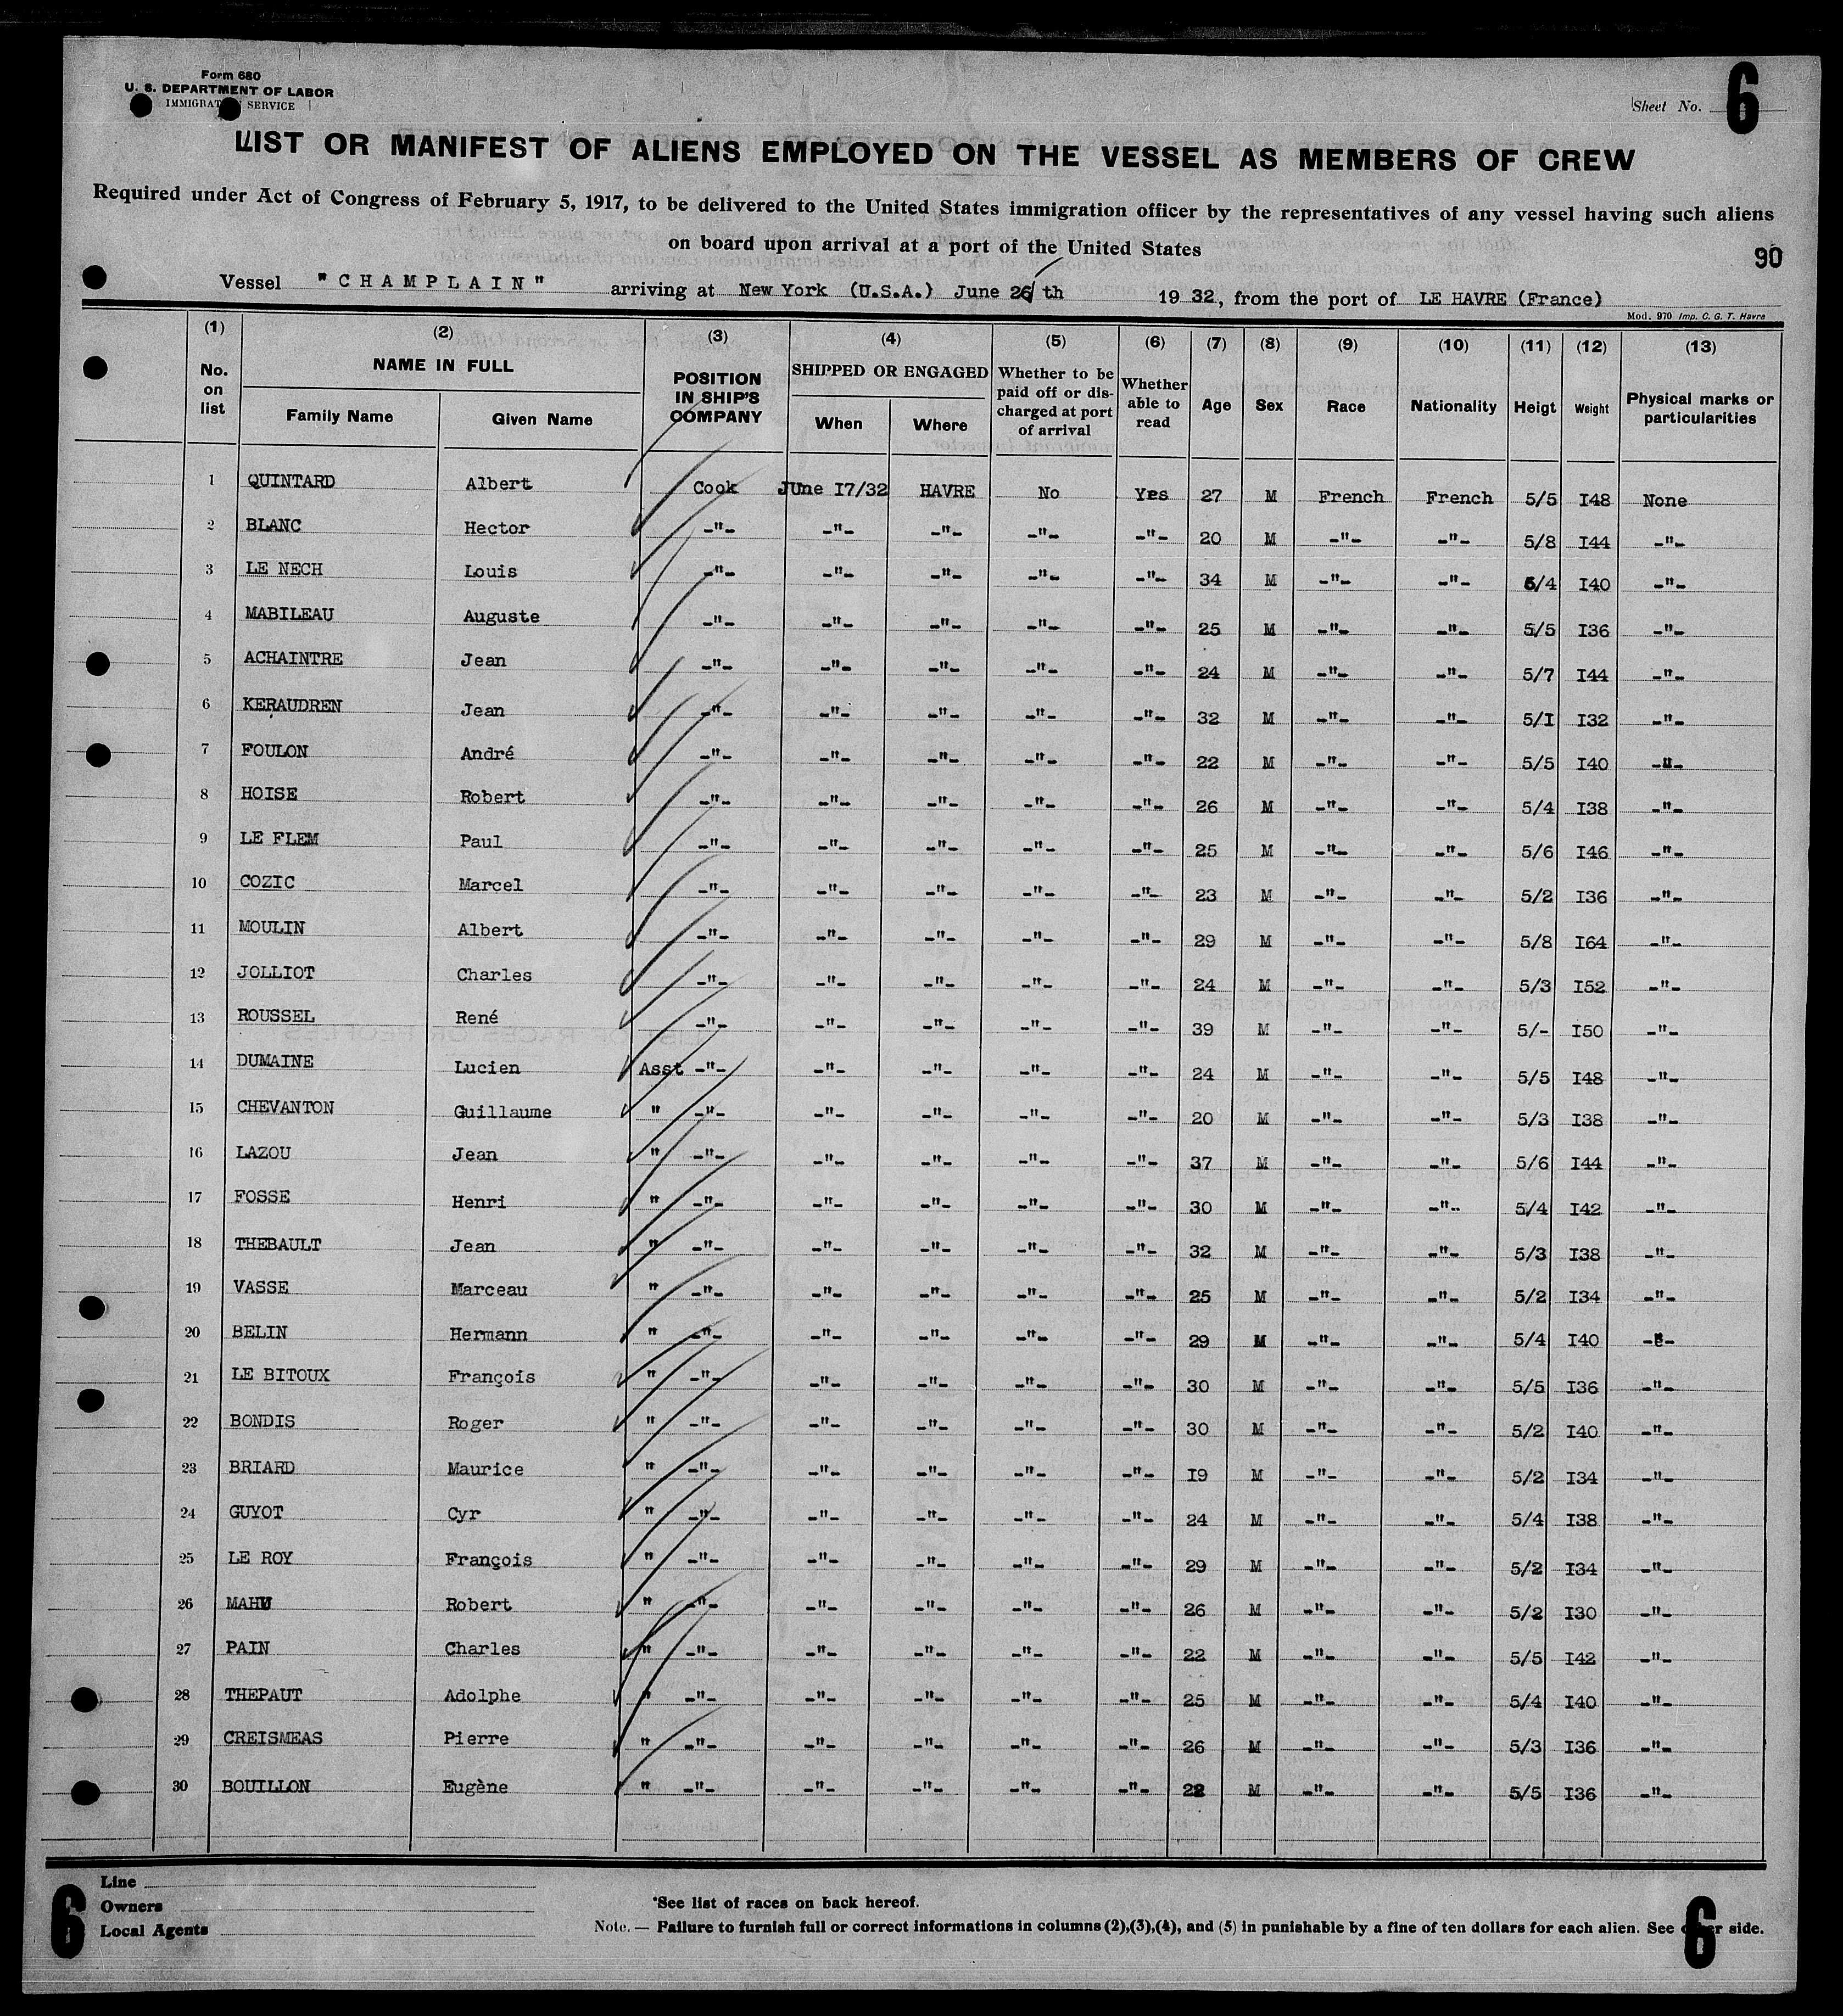 Form 680
U. S. DEPARTMENT OF LABOR
IMMIGRAT SERVICE
Sheet No. 6
LIST OR MANIFEST OF ALIENS EMPLOYED ON THE VESSEL AS MEMBERS OF CREW
Required under Act of Congress of February 5, 1917, to be delivered to the United States immigration officer by the representatives of any vessel having such aliens
on board upon arrival at a port of the United States
90
Vessel "CHAMPLAIN" arriving at New York (U.S.A.) June 26/th 19 32, from the port of LE HAVRE (France)
Mod. 970 Imp. C. G. T. Havre
(1) (2) (3) (4) (5) (6) (7) (8) (9) (10) (11) (12) (13)
No. on list NAME IN FULL Family Name Given Name POSITION IN SHIP'S COMPANY SHIPPED OR ENGAGED When Where Whether to be paid off or dis-charged at port of arrival Whether able to read Age Sex Race Nationality Heigt Weight Physical marks or particularities
1 QUINTARD Albert Cook JUne I7/32 HAVRE No Yes 27 M French French 5/5 I48 None
2 BLANC Hector -"- -"- -"- -"- -"- 20 M -"- -"- 5/8 I44 -"-
3 LE NECH Louis -"- -"- -"- -"- -"- 34 M -"- -"- 5/4 I40 -"-
4 MABILEAU Auguste -"- -"- -"- -"- -"- 25 M -"- -"- 5/5 I36 -"-
5 ACHAINTRE Jean -"- -"- -"- -"- -"- 24 M -"- -"- 5/7 I44 -"-
6 KERAUDREN Jean -"- -"- -"- -"- -"- 32 M -"- -"- 5/I I32 -"-
7 FOULON André -"- -"- -"- -"- -"- 22 M -"- -"- 5/5 I40 -"-
8 HOISE Robert -"- -"- -"- -"- -"- 26 M -"- -"- 5/4 I38 -"-
9 LE FLEM Paul -"- -"- -"- -"- -"- 25 M -"- -"- 5/6 I46 -"-
10 COZIC Marcel -"- -"- -"- -"- -"- 23 M -"- -"- 5/2 I36 -"-
11 MOULIN Albert -"- -"- -"- -"- -"- 29 M -"- -"- 5/8 I64 -"-
12 JOLLIOT Charles -"- -"- -"- -"- -"- 24 M -"- -"- 5/3 I52 -"-
13 ROUSSEL René -"- -"- -"- -"- -"- 39 M -"- -"- 5/- I50 -"-
14 DUMAINE Lucien Asst -"- -"- -"- -"- -"- 24 M -"- -"- 5/5 I48 -"-
15 CHEVANTON Guillaume " -"- -"- -"- -"- -"- 20 M -"- -"- 5/3 I38 -"-
16 LAZOU Jean " -"- -"- -"- -"- -"- 37 M -"- -"- 5/6 I44 -"-
17 FOSSE Henri " -"- -"- -"- -"- -"- 30 M -"- -"- 5/4 I42 -"-
18 THEBAULT Jean " -"- -"- -"- -"- -"- 32 M -"- -"- 5/3 I38 -"-
19 VASSE Marceau " -"- -"- -"- -"- -"- 25 M -"- -"- 5/2 I34 -"-
20 BELIN Hermann " -"- -"- -"- -"- -"- 29 M -"- -"- 5/4 I40 -"-
21 LE BITOUX François " -"- -"- -"- -"- -"- 30 M -"- -"- 5/5 I36 -"-
22 BONDIS Roger " -"- -"- -"- -"- -"- 30 M -"- -"- 5/2 I40 -"-
23 BRIARD Maurice " -"- -"- -"- -"- -"- I9 M -"- -"- 5/2 I34 -"-
24 GUYOT Cyr " -"- -"- -"- -"- -"- 24 M -"- -"- 5/4 I38 -"-
25 LE ROY François " -"- -"- -"- -"- -"- 29 M -"- -"- 5/2 I34 -"-
26 MAHU Robert " -"- -"- -"- -"- -"- 26 M -"- -"- 5/2 I30 -"-
27 PAIN Charles " -"- -"- -"- -"- -"- 22 M -"- -"- 5/5 I42 -"-
28 THEPAUT Adolphe " -"- -"- -"- -"- -"- 25 M -"- -"- 5/4 I40 -"-
29 CREISMEAS Pierre " -"- -"- -"- -"- -"- 26 M -"- -"- 5/3 I36 -"-
30 BOUILLON Eugène " -"- -"- -"- -"- -"- 28 M -"- -"- 5/5 I36 -"-
6
Line
Owners
Local Agents
*See list of races on back hereof.
Note. — Failure to furnish full or correct informations in columns (2),(3),(4), and (5) in punishable by a fine of ten dollars for each alien. See other side.
6